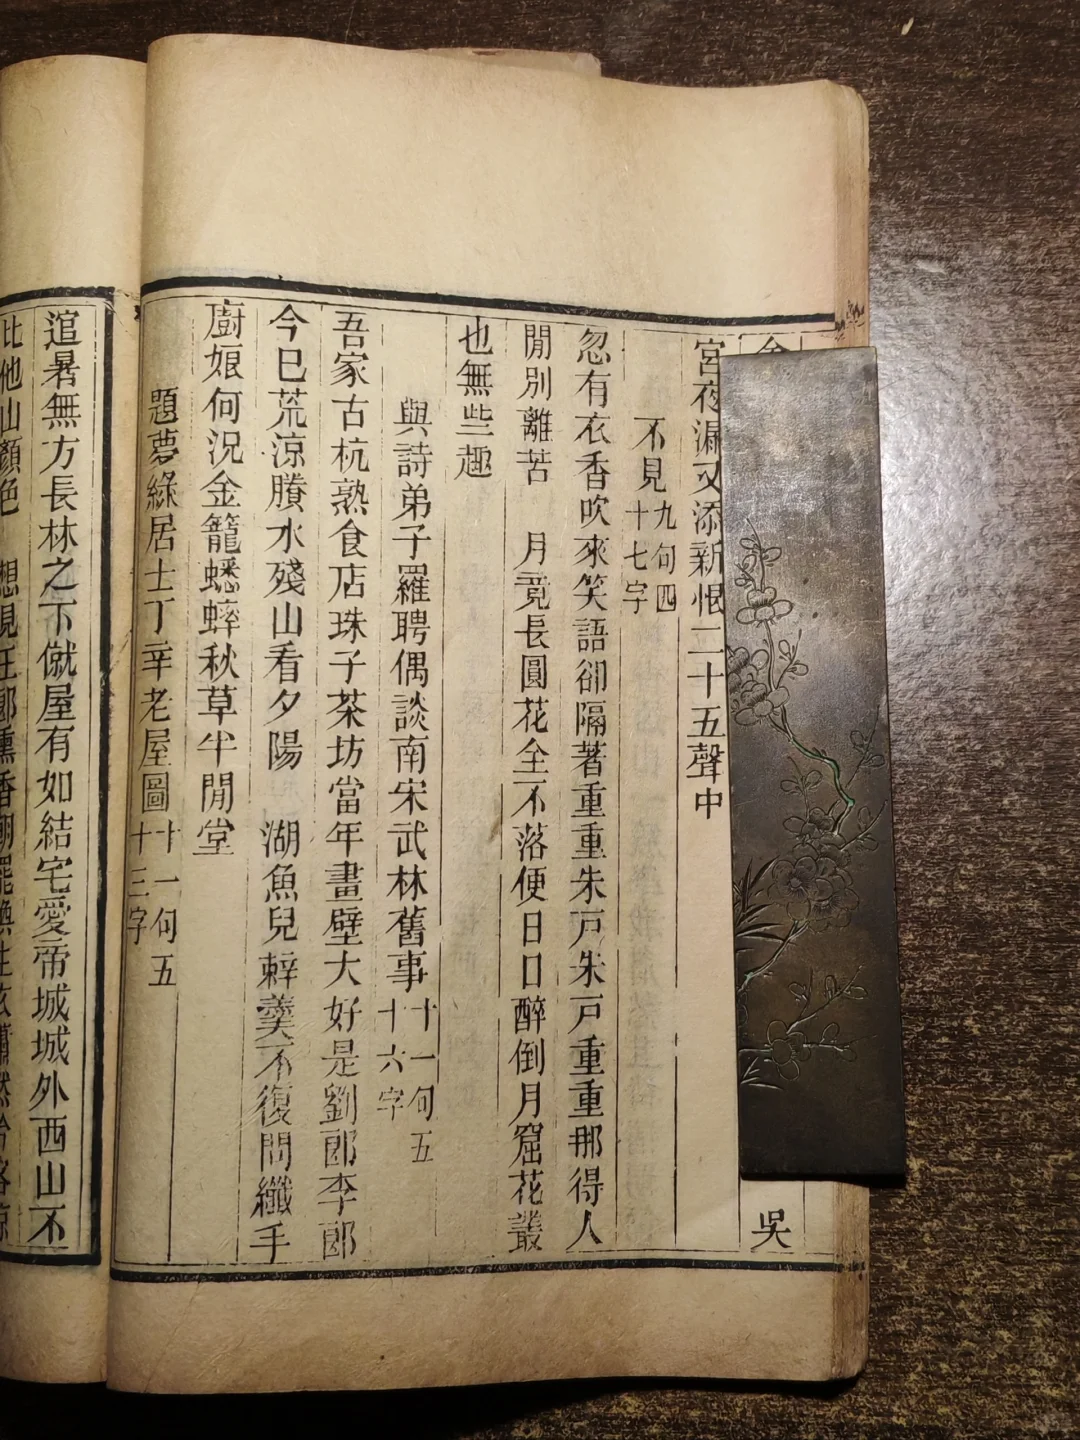 吳
宮夜漏又添新恨二十五聲中
不見九句四十七字
忽有衣香吹來笑語卻隔著重重朱戸朱戸重重那得人
閒別離苦　月竟長圓花全不落便日日醉倒月窟花叢
也無些趣
與詩弟子羅聘偶談南宋武林舊事十一句五十六字
吾家古杭熟食店珠子茶坊當年畫壁大好是劉郎李郎
今巳荒涼賸水殘山看夕陽　湖魚兒辣羹不復問纖手
廚娘何況金籠蟋蟀秋草半閒堂
題夢綠居士丁辛老屋圖十一句五十三字
逭暑無方長林之下僦屋有如結宅愛帝城城外西山不
比他山顏色　想見王郎熏香朝罷